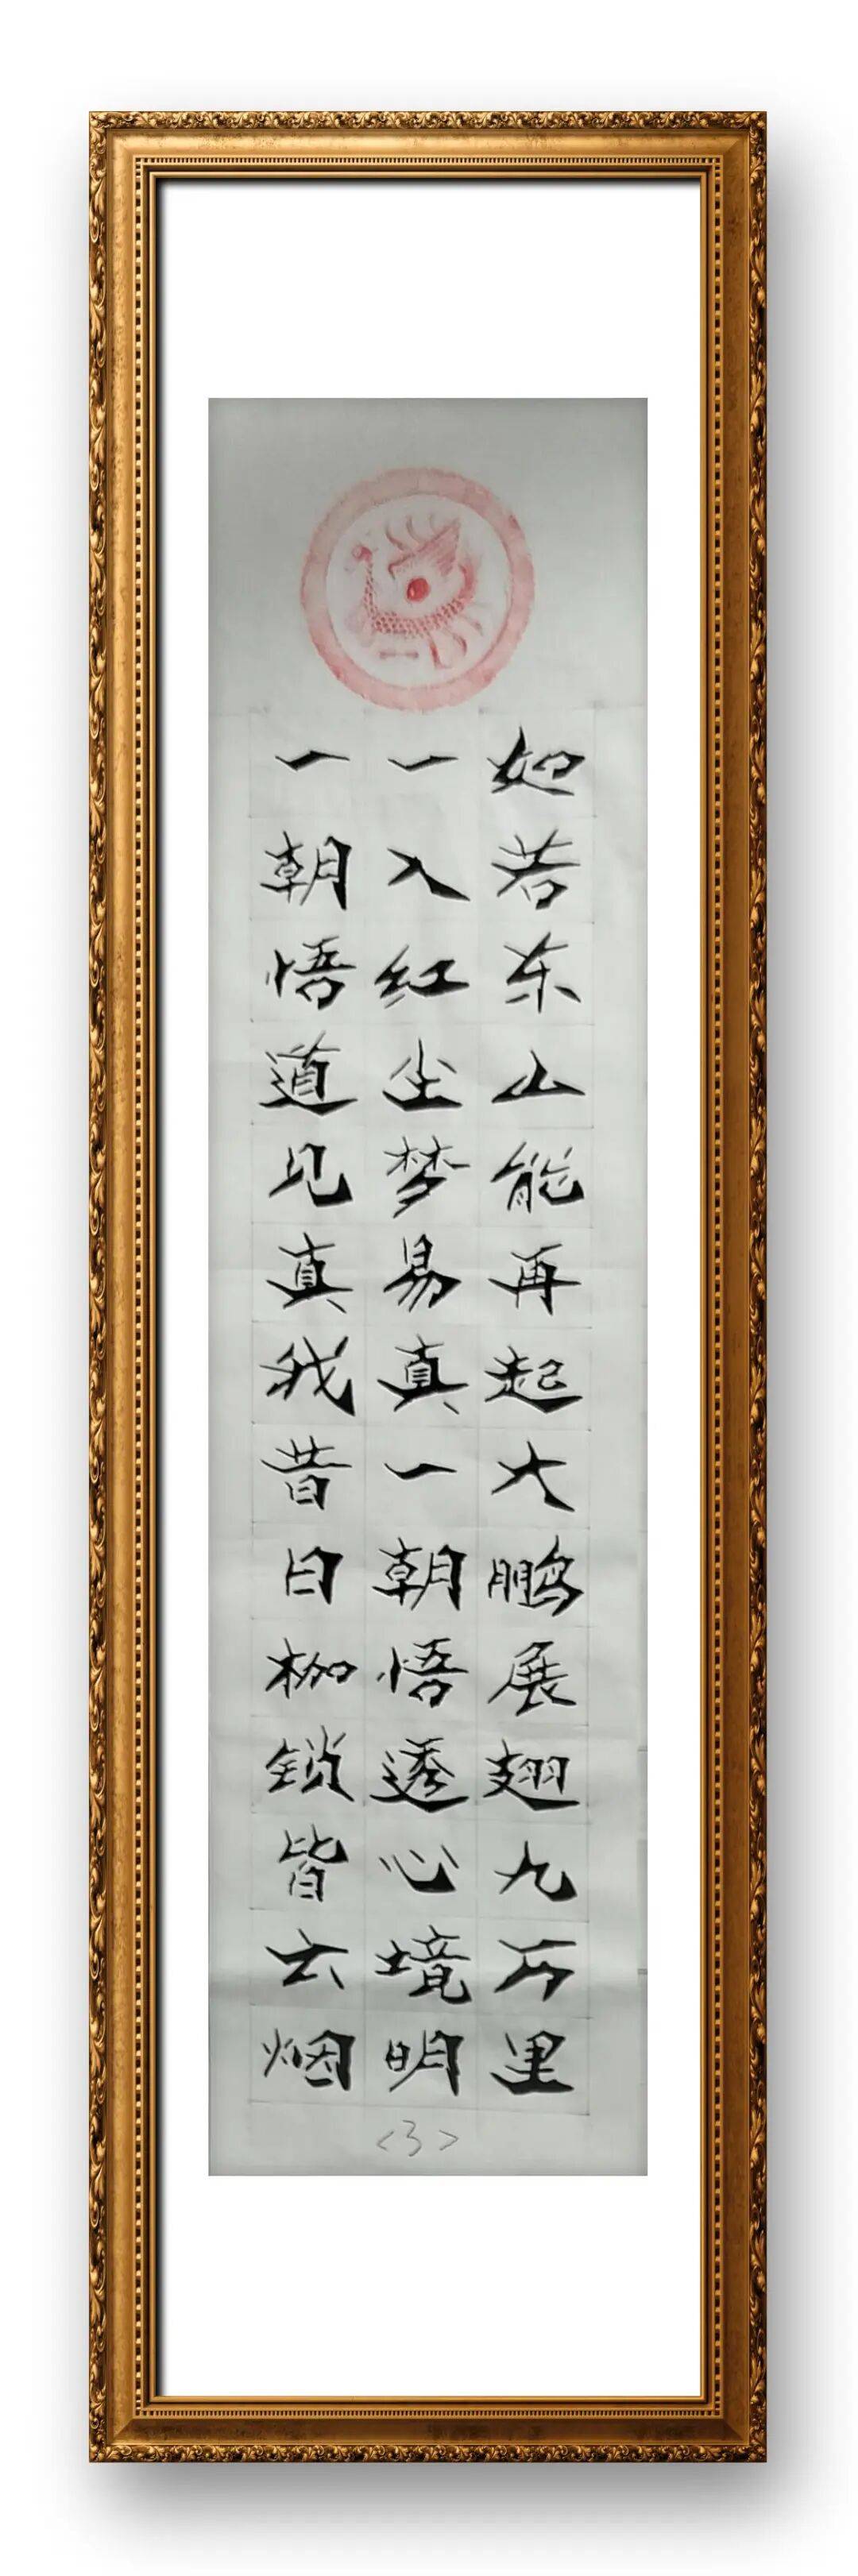 如若东山能再起大鹏展翅九万里
一入红尘梦易真一朝悟透心境明
一朝悟道见真我昔日枷锁皆云烟
<3>